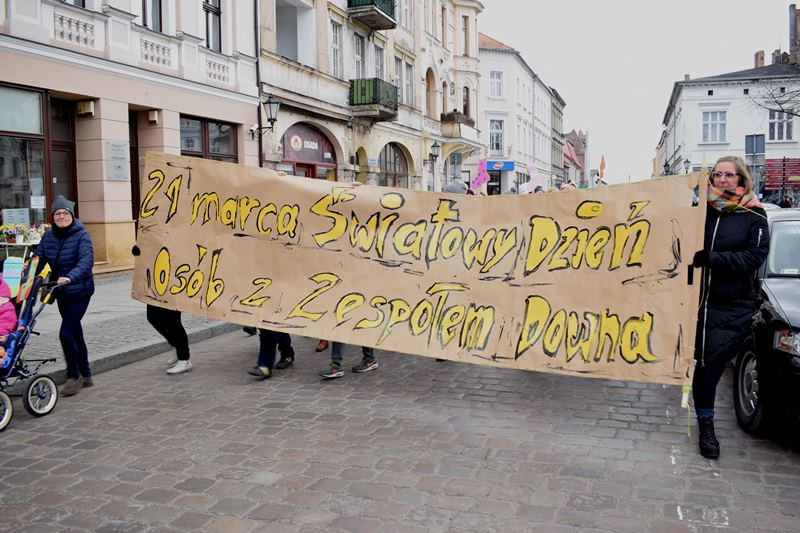 21 marca Światowy Dzień
Osób z Zespołem Downa
OSADA